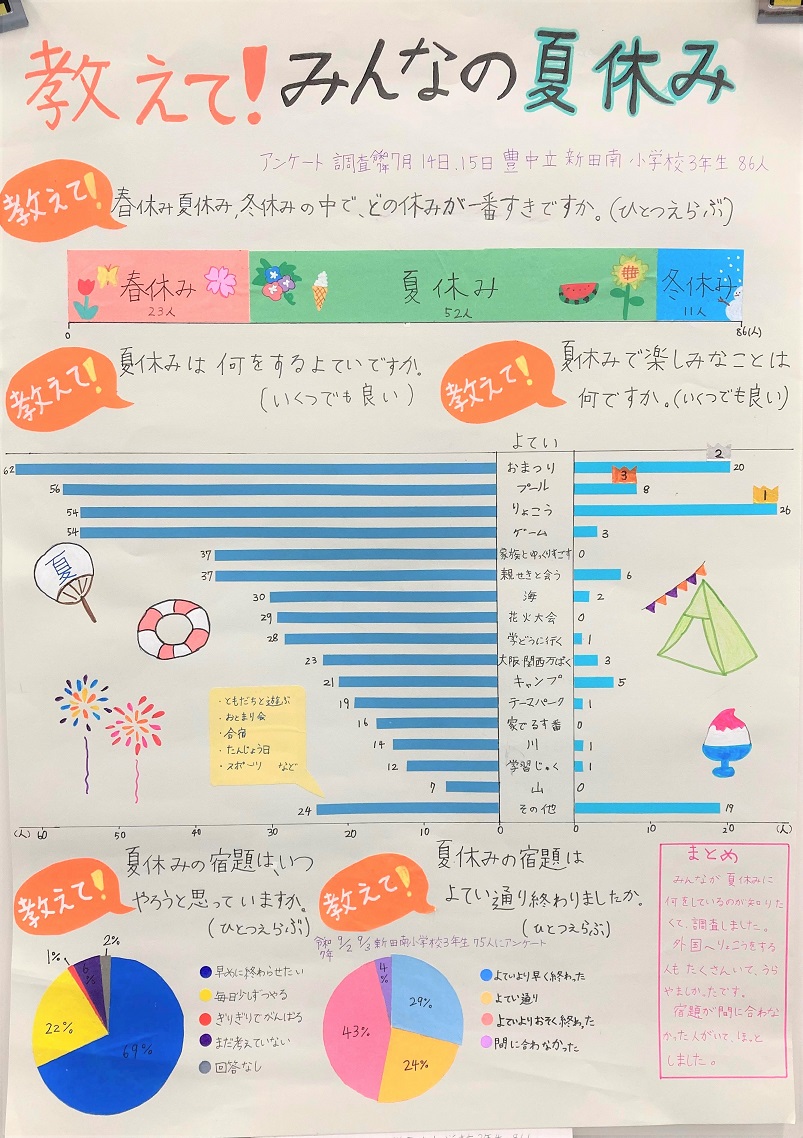 教えて!みんなの夏休み
アンケート調査令和7年7月14日、15日 豊中立新田南小学校3年生86人
教えて!
春休み夏休み,冬休みの中で、どの休みが一番すきですか。(ひとつえらぶ)
春休み 夏休み 冬休み
23人 52人 11人
0 86(人)
教えて!
夏休みは何をするよていですか。
(いくつでも良い)
教えて!
夏休みで楽しみなことは
何ですか。(いくつでも良い)
よてい
2
62 おまつり 20
3
56 プール 8
1
54 りょこう 26
54 ゲーム 3
37 家族とゆっくりすごす 0
37 親せきと会う 6
30 海 2
29 花火大会 0
28 学どうに行く 1
23 大阪関西万ぱく 3
21 キャンプ 5
19 テーマパーク 1
16 家でるす番 0
14 川 1
12 学習じゅく 1
7 山 0
24 その他 19
夏
・ともだちと遊ぶ
・おとまり会
・合宿
・たんじょう日
・スポーツ など
(人) 60 50 40 30 20 10 0 0 10 20 (人)
教えて!
夏休みの宿題は、いつ
やろうと思っていますか。
(ひとつえらぶ)
1% 6% 2%
22%
69%
早めに終わらせたい
毎日少しずつやる
ぎりぎりでがんばる
まだ考えていない
回答なし
教えて!
夏休みの宿題は
よてい通り終わりましたか。
(ひとつえらぶ)
令和7年 9/2 9/3 新田南小学校3年生75人にアンケート
4%
29%
43%
24%
よていより早く終わった
よてい通り
よていよりおそく終わった
間に合わなかった
まとめ
みんなが夏休みに
何をしているのか知りた
くて、調査しました。
外国へりょこうをする
人もたくさんいて、うら
やましかったです。
宿題が間に合わな
かった人がいて、ほっと
しました。